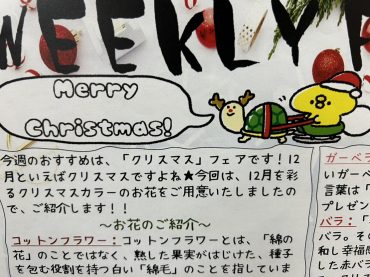 WEEKLY
Merry
Christmas!
今週のおすすめは、「クリスマス」フェアです！12
月といえばクリスマスですよね★今回は、12月を彩
るクリスマスカラーのお花をご用意いたしましたの
で、ご紹介します！！
～お花のご紹介～
コットンフラワー：コットンフラワーとは、「綿の
花」のことではなく、熟した果実がはじけた、種子
を包む役割を持つ白い「綿毛」のことを指していま
ガーベラ
いガーベ
言葉は「
プレゼン
バラ：「
バラ。その
和し幸福感
した赤バラ